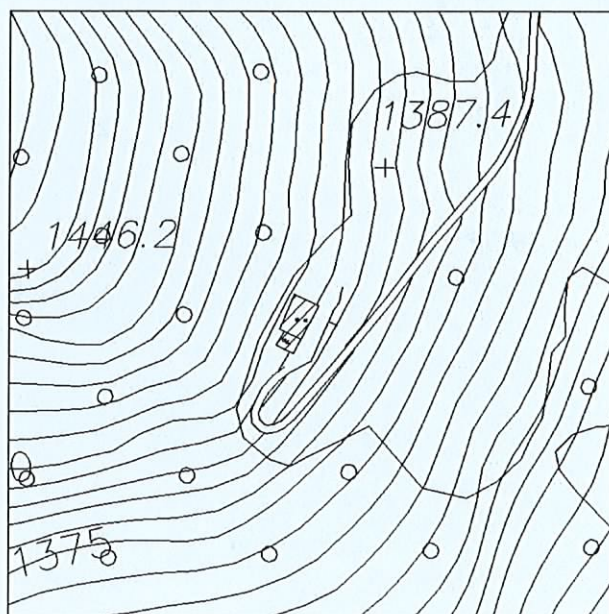 1387.4
1446.2
1375